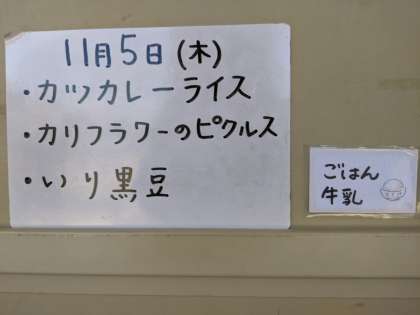 11月5日(木)
・カツカレーライス
・カリフラワーのピクルス
・いり黒豆
ごはん
牛乳